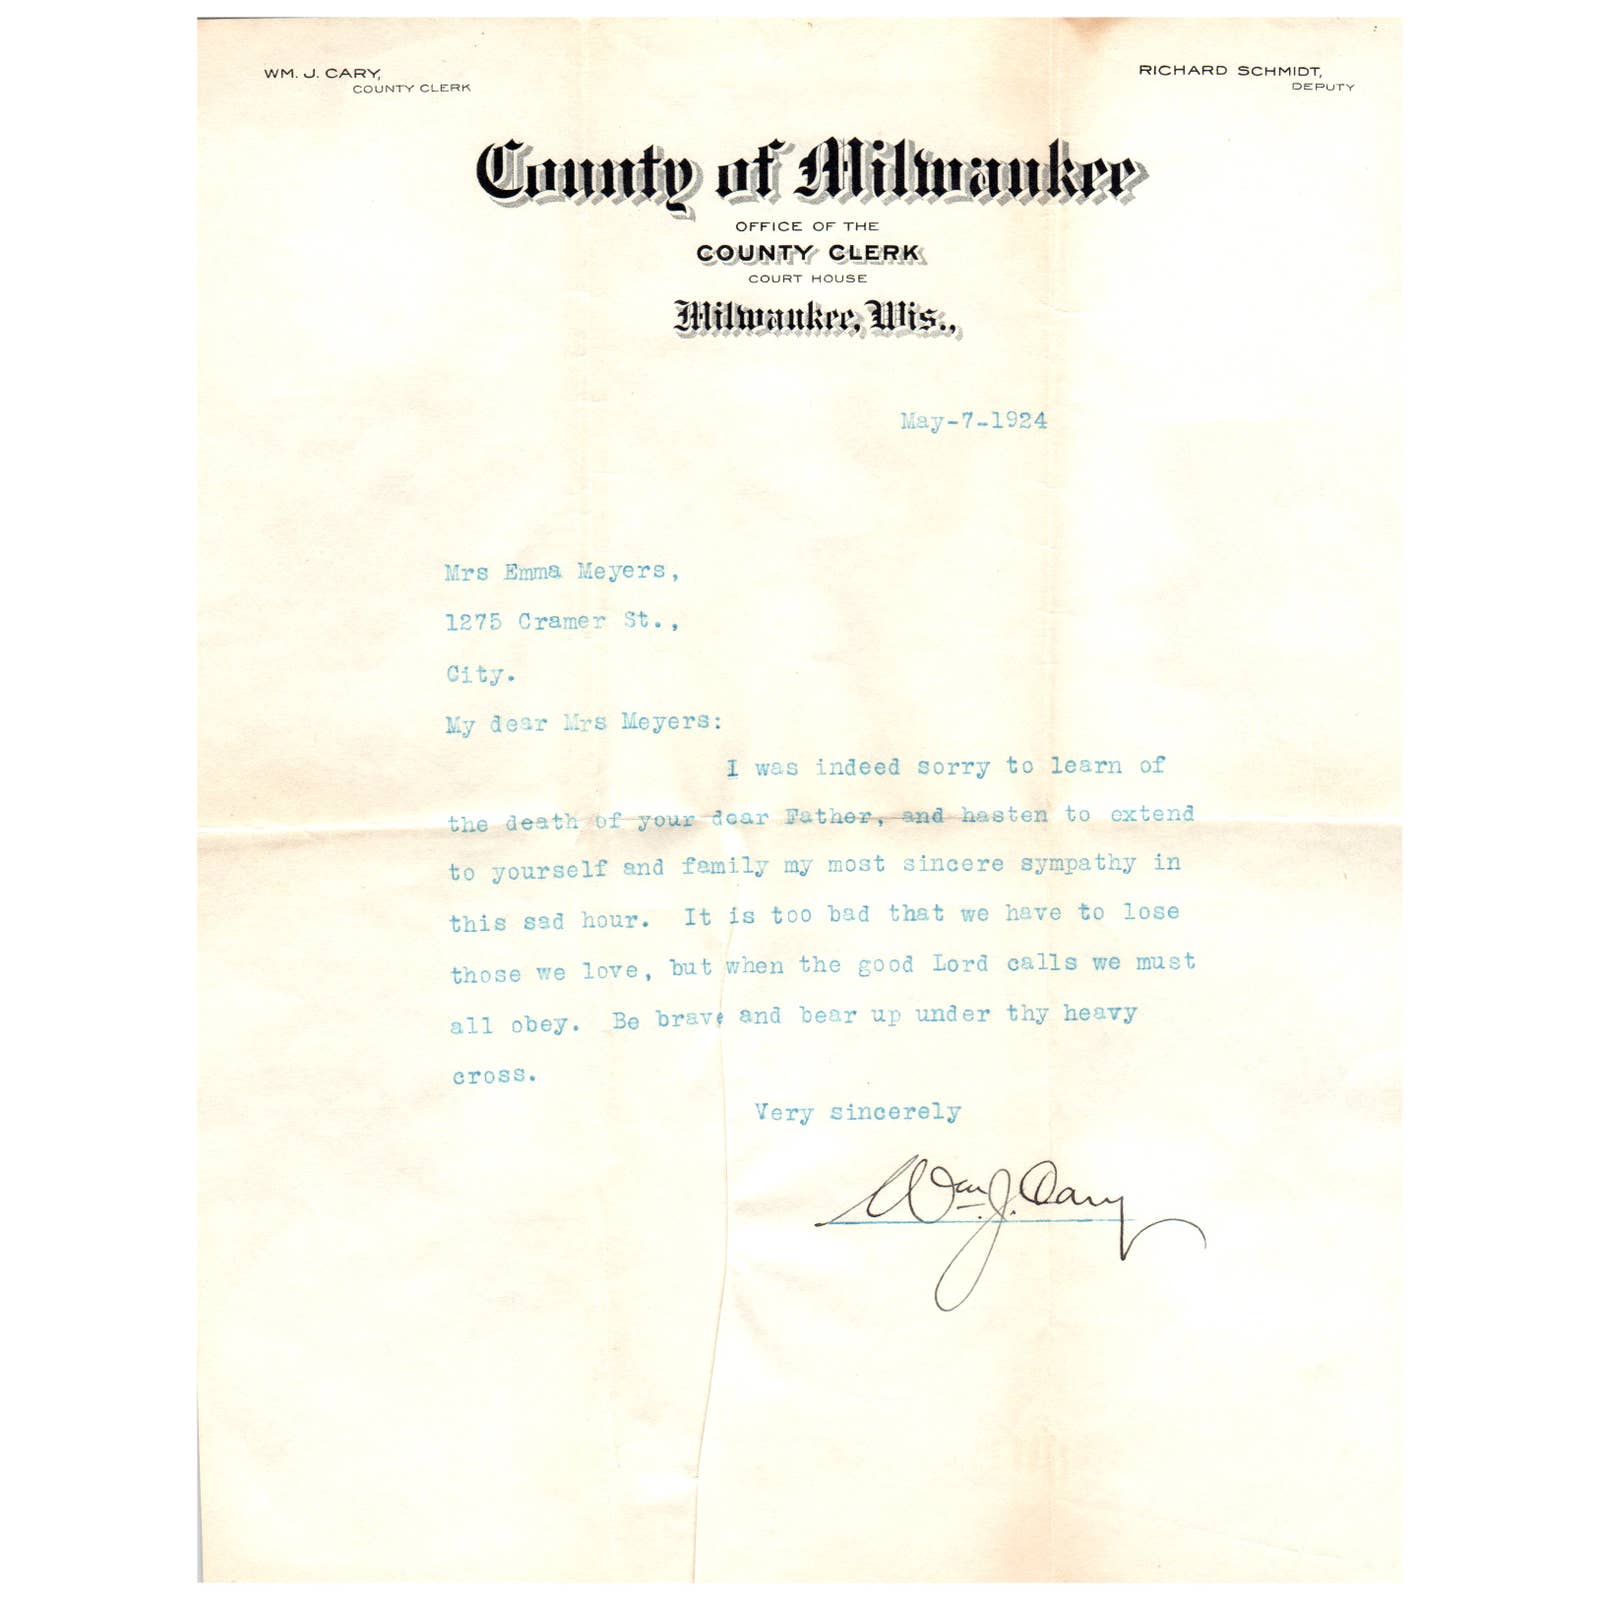 WM. J. CARY,
COUNTY CLERK
RICHARD SCHMIDT,
DEPUTY
County of Milwaukee
OFFICE OF THE
COUNTY CLERK
COURT HOUSE
Milwaukee, Wis.,
May-7-1924
Mrs Emma Meyers,
1275 Cramer St.,
City.
My dear Mrs Meyers:
I was indeed sorry to learn of
the death of your dear Father, and hasten to extend
to yourself and family my most sincere sympathy in
this sad hour. It is too bad that we have to lose
those we love, but when the good Lord calls we must
all obey. Be brave and bear up under thy heavy
cross.
Very sincerely
Wm. J. Cary